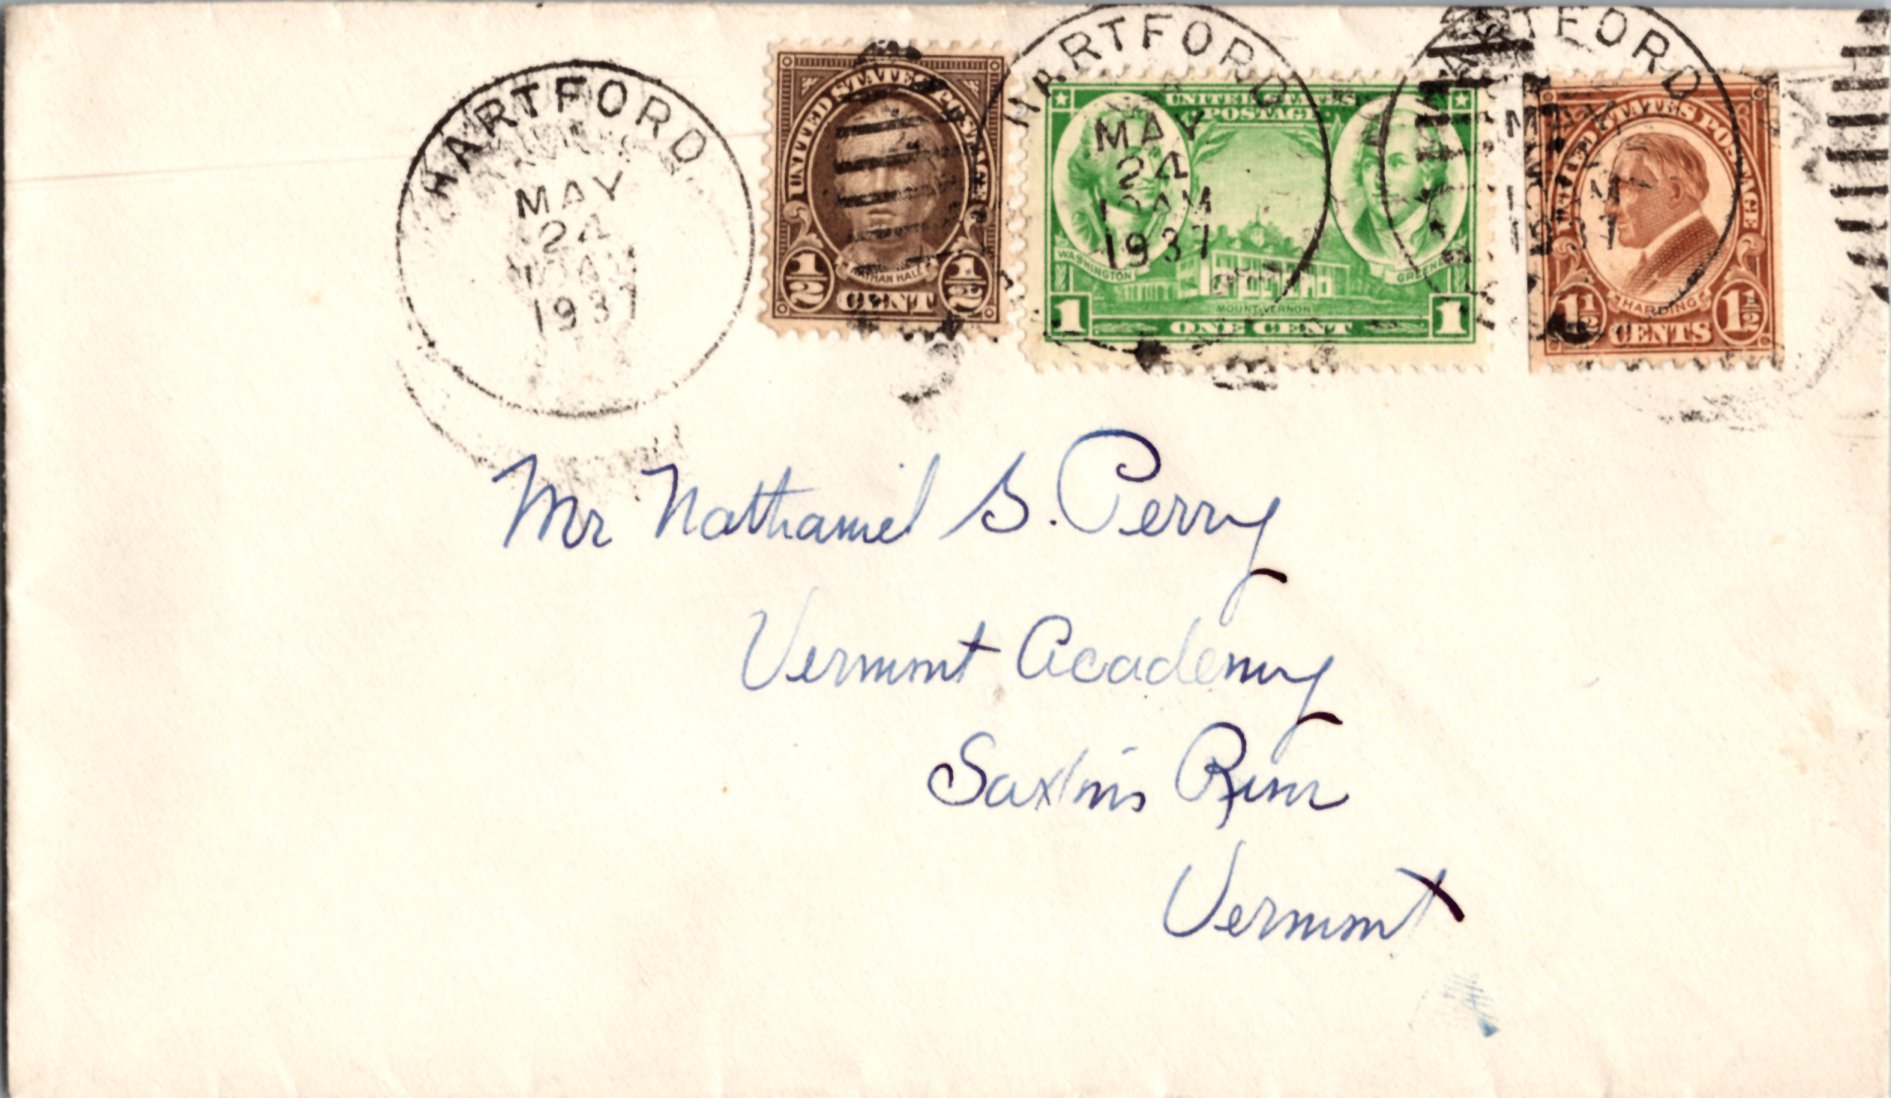 HARTFORD
MAY
24
10 AM
1937
UNITED STATES POSTAGE
NATHAN HALE
1/2 CENT 1/2
HARTFORD
MAY
24
10 AM
1937
UNITED STATES
POSTAGE
WASHINGTON
GREENE
MOUNT VERNON
1 ONE CENT 1
HARTFORD
MAY
1937
UNITED STATES POSTAGE
HARDING
1½ CENTS 1½
Mr Nathaniel S. Perry
Vermont Academy
Saxtons River
Vermont